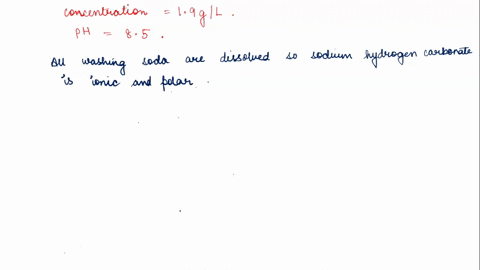 concentration = 1.9 g/L.
PH = 8.5.
All washing soda are dissolved so sodium hydrogen carbonate
is ionic and polar.